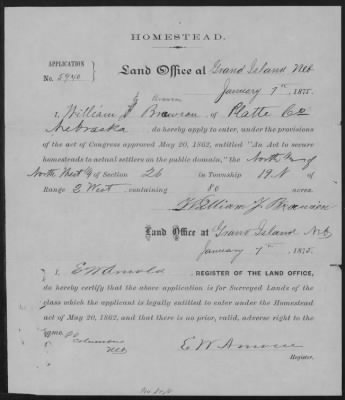 HOMESTEAD.
APPLICATION
No. 5940
Land Office at Grand Island Neb
January 7th, 1875.
I, William J Brawron of Platte Co
Nebraska do hereby apply to enter, under the provisions
of the act of Congress approved May 20, 1862, entitled "An Act to secure
homesteads to actual settlers on the public domain," the North ½ of
North West ¼ of Section 26 in Township 19 N of
Range 2 West, containing 80 acres.
William J.
Land Office at Grand Island Neb
January 7, 1875.
I, E W Arnold, REGISTER OF THE LAND OFFICE,
do hereby certify that the above application is for Surveyed Lands of the
class which the applicant is legally entitled to enter under the Homestead
act of May 20, 1862, and that there is no prior, valid, adverse right to the
same.
Columbus
Neb
E W Arnold
Register.